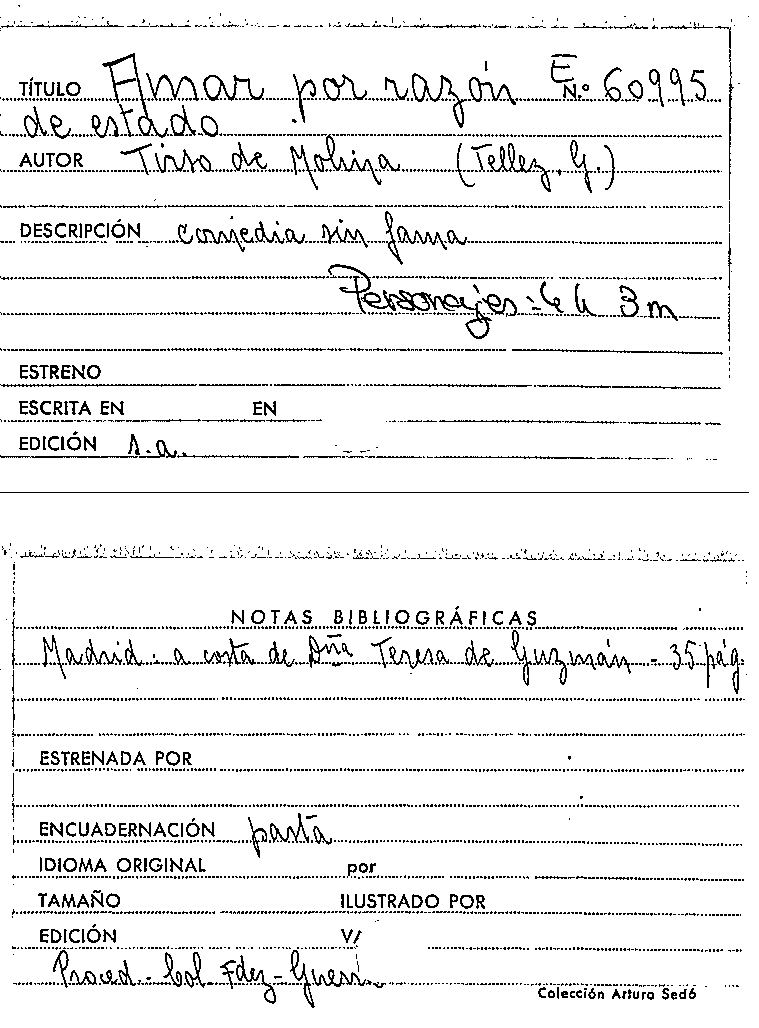 TÍTULO Amar por razón E N.º 60995
de estado
AUTOR Tirso de Molina (Tellez, G.)
DESCRIPCIÓN comedia sin fama
Personajes: 6 h 3 m
ESTRENO
ESCRITA EN EN
EDICIÓN s.a.
NOTAS BIBLIOGRÁFICAS
Madrid. a costa de Dña Teresa de Guzmán - 35 pág.
ESTRENADA POR
ENCUADERNACIÓN pasta
IDIOMA ORIGINAL por
TAMAÑO ILUSTRADO POR
EDICIÓN V/
Proced. - Col. Fdez-Guerra
Colección Arturo Sedó